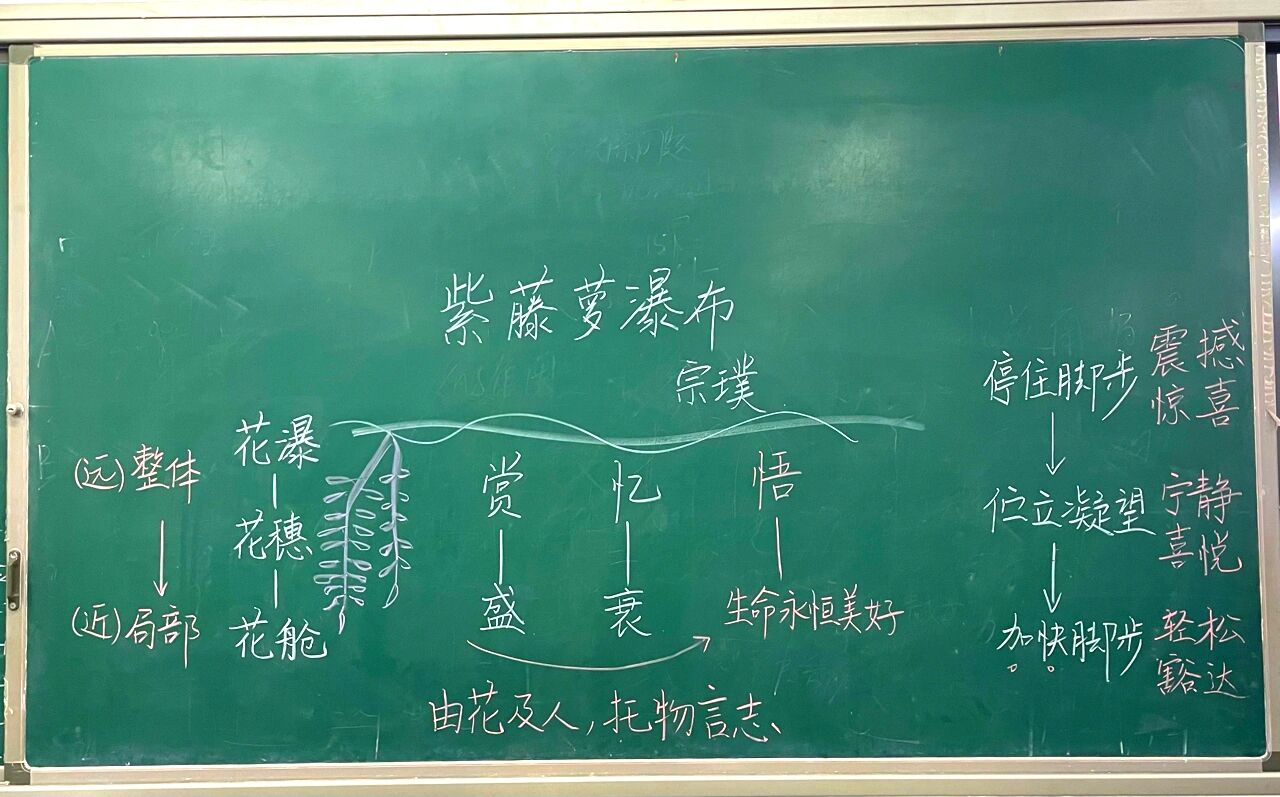 紫藤萝瀑布
宗璞
(远)整体
(近)局部
花瀑
花穗
花舱
赏
盛
忆
衰
悟
生命永恒美好
由花及人,托物言志、
停住脚步
震撼
惊喜
伫立凝望
宁静
喜悦
加快脚步
轻松
豁达